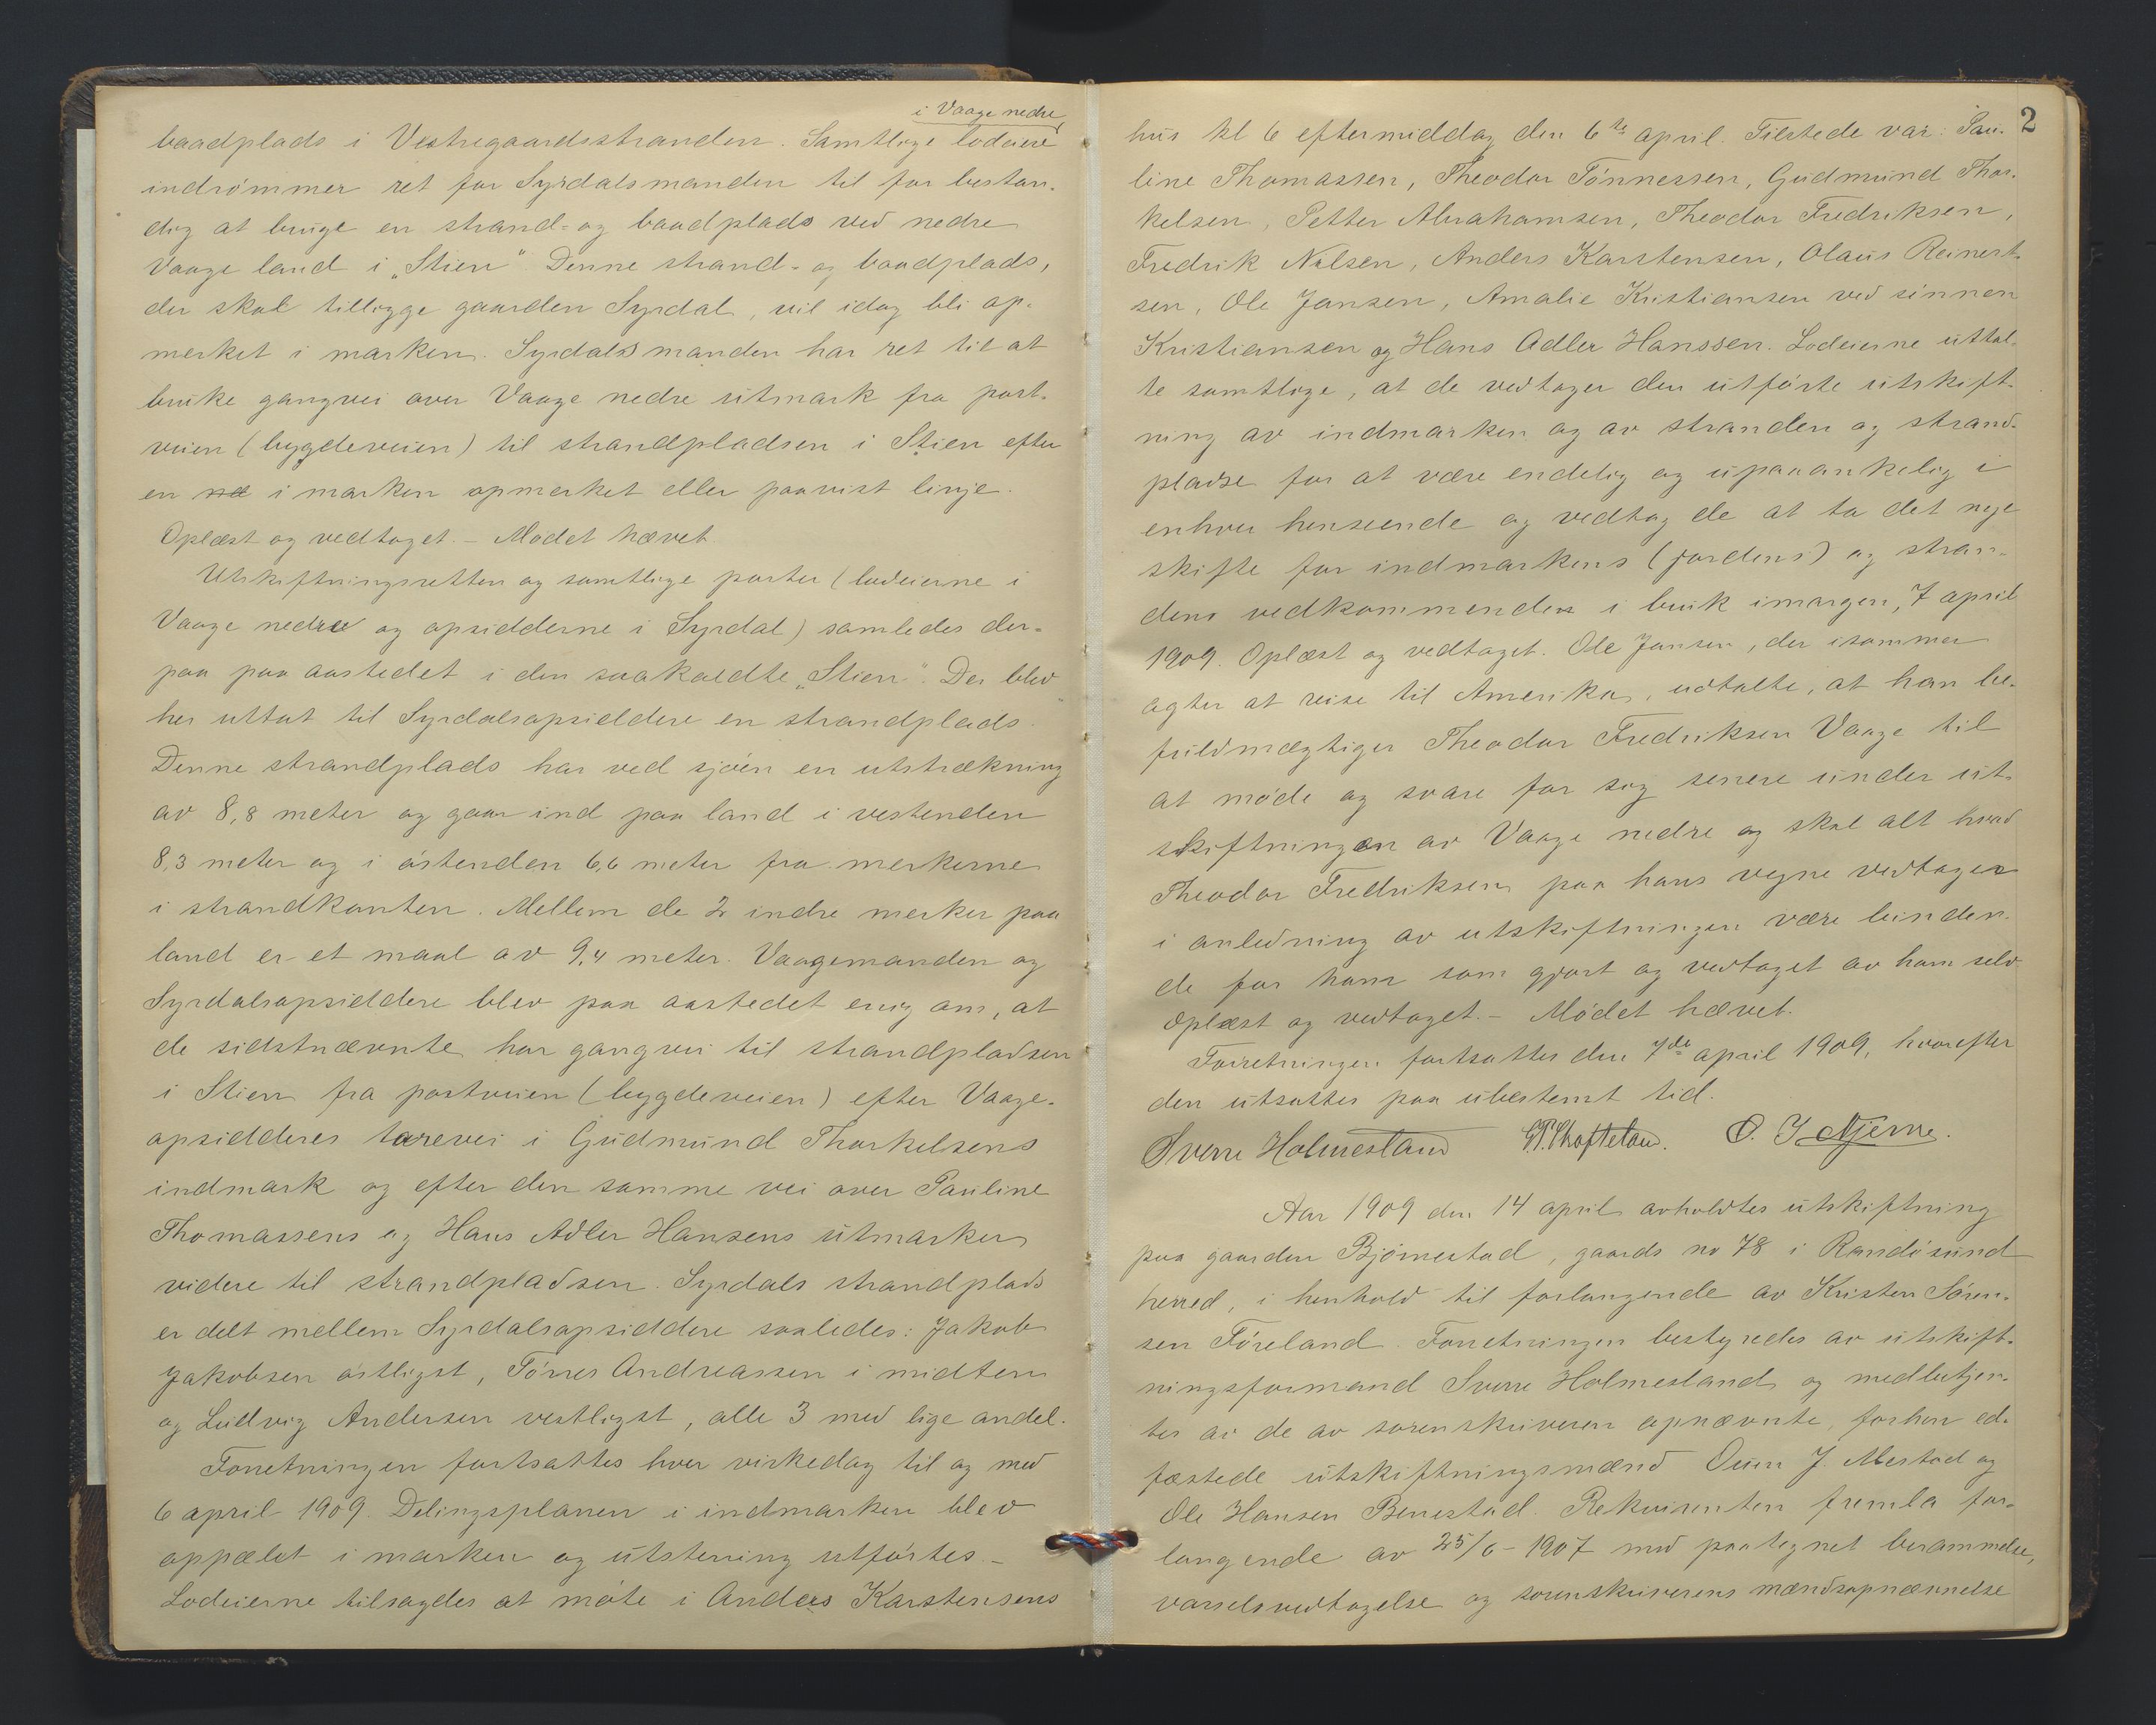 i Vaage nedre
baadplads i Vestregaardsstranden. Samtlige lodeiere
indrømmer ret for Syrdalsmanden til for bestan-
dig at bruge en strand- og baadplads ved nedre
Vaage land i „Stien“ Denne strand- og baadplads,
der skal tilligge gaarden Syrdal, vil idag bli op-
merket i marken. Syrdalsmanden har ret til at
bruke gangvei over Vaage nedre utmark fra post-
veien (bygdeveien) til strandpladsen i Stien efter
en i marken opmerket eller paavist linje.
Oplæst og vedtaget. – Mødet hævet.
Utskiftningsretten og samtlige parter (lodeierne i
Vaage nedre og opsidderne i Syrdal) samledes der-
paa paa aastedet i den saakaldte „Stien“. Der blev
her uttat til Syrdalsopsiddere en strandplads.
Denne strandplads har ved sjøen en utstrækning
av 8,8 meter og gaar ind paa land i vestenden
8,3 meter og i østenden 6,6 meter fra merkerne
i strandkanten. Mellem de 2 indre merker paa
land er et maal av 9,4 meter. Vaagemanden og
Syrdalsopsiddere blev paa aastedet enig om, at
de sidstnævnte har gangvei til strandpladsen
i Stien fra postveien (bygdeveien) efter Vaage-
opsidderes tarevei i Gudmund Thorkelsens
indmark og efter den samme vei over Pauline
Thomassens og Hans Adler Hansens utmarker
videre til strandpladsen. Syrdals strandplads
er delt mellem Syrdalsopsiddere saaledes: Jakob
Jakobsen østligst, Tørres Andreassen i midten
og Ludvig Andersen vestligst, alle 3 med lige andel.
Forretningen fortsattes hver virkedag til og med
6 april 1909. Delingsplanen i indmarken blev
oppælet i marken og utstening utførtes. –
Lodeierne tilsagdes at møte i Anders Karstensens
2
hus kl 6 eftermiddag den 6te april. Tilstede var: Pau-
line Thomassen, Theodor Tønnessen, Gudmund Thor-
kelsen, Petter Abrahamsen, Theodor Fredriksen,
Fredrik Nilsen, Anders Karstensen, Olaus Reinert-
sen, Ole Jansen, Amalie Kristiansen ved sønnen
Kristiansen og Hans Adler Hanssen. Lodeierne uttal-
te samtlige, at de vedtager den utførte utskift-
ning av indmarken og av stranden og strand-
pladse for at være endelig og upaaankelig i
enhver henseende og vedtog de at ta det nye
skifte for indmarkens (jordens) og stran-
dens vedkommende i bruk imorgen, 7 april
1909. Oplæst og vedtaget. Ole Jansen, der isommer
agter at reise til Amerika, udtalte, at han be-
fuldmægtiger Theodor Fredriksen Vaage til
at møde og svare for sig senere under ut-
skiftningen av Vaage nedre og skal alt hvad
Theodor Fredriksen paa hans vegne vedtager
i anledning av utskiftningen være binden-
de for ham som gjort og vedtaget av ham selv
Oplæst og vedtaget. – Mødet hævet.
Forretningen fortsattes den 7de april 1909, hvorefter
den utsattes paa ubestemt tid.
Sverre Holmesland O. J.
Aar 1909 den 14 april avholdtes utskiftning
paa gaarden Bjørnestad, gaards no 78 i Randøsund
herred, i henhold til forlangende av Kristen Søren-
sen Føreland. Forretningen bestyredes av utskift-
ningsformand Sverre Holmesland og medbetjen-
tes av de av sorenskriveren opnævnte, forhen ed-
fæstede utskiftningsmænd Ouen J. Mestad og
Ole Hansen Benestad. Rekvirenten fremla for-
langende av 25/6 – 1907 med paategnet berammelse,
varselsvedtagelse og sorenskriverens mændsopnævnelse